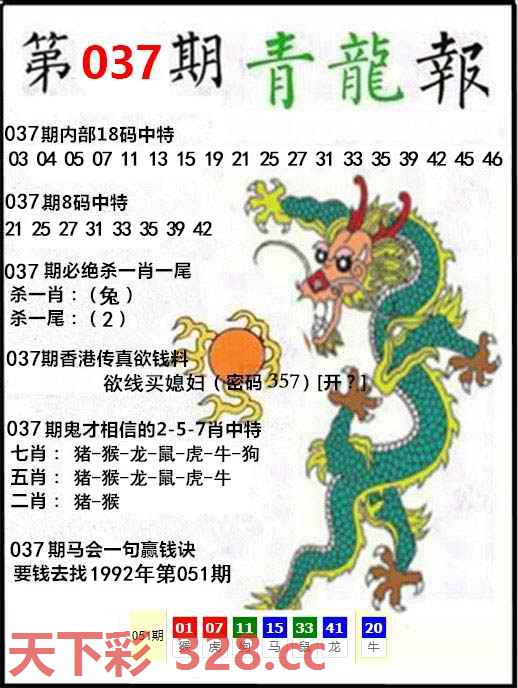 第037期青龍報
037期内部18码中特
03 04 05 07 11 13 15 19 21 25 27 31 33 35 39 42 45 46
037期8码中特
21 25 27 31 33 35 39 42
037期必绝杀一肖一尾
杀一肖：（兔）
杀一尾：（2）
037期香港传真欲钱料
欲线买媳妇（密码357）[开？]
037期鬼才相信的2-5-7肖中特
七肖： 猪-猴-龙-鼠-虎-牛-狗
五肖： 猪-猴-龙-鼠-虎-牛
二肖： 猪-猴
037期马会一句赢钱诀
要钱去找1992年第051期
051期 01 07 11 15 33 41 20
猴 虎 狗 马 鼠 龙 牛
天下彩 328.cc